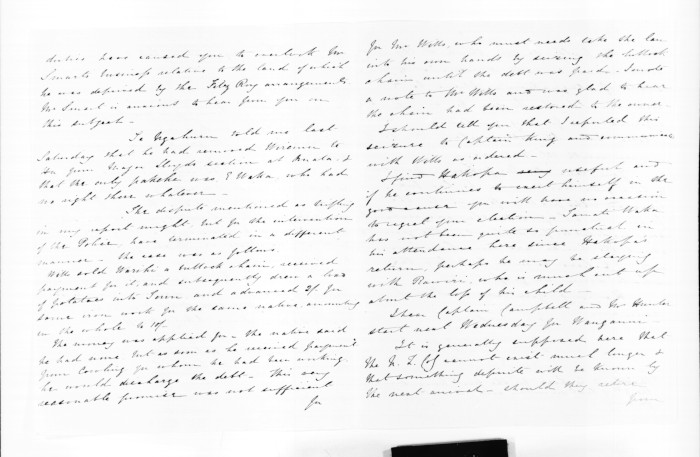 duties have caused you to overlook Mr
Smarts business relative to the land of which
he was deprived by the Fitz Roy arrangements
Mr Smart is anxious to hear from you on
this subject.
Te Ngahuru told me last
Saturday that he had removed Wiremu to
from Major section at &
that the only pakeha was E Waka who had
no right there whatever.
The dispute mentioned as trifling
in my report might, but for the intervention
of the Police, have terminated in a different
manner. The case was as follows.
Watts sold a bullock chain, received
payment for it, and subsequently drew a load
of potatoes into Town and advanced 2/ for
some iron work for the same native, amounting
in the whole to
The money was applied for, the native said
he had none but as soon as he received payment
from for whom he had been working,
he would discharge the debt. This very
reasonable promise was not sufficient
for
for Mr Watts, who must needs take the law
into his own hands by seizing the bullock
chain until the debt was paid. I wrote
a note to Mr Watts and was glad to hear
the chain had been restored to the owner.
I should tell you that I reported this
seizure to Captain King and communicated
with Watts as ordered.
I find Hakopa useful and
if he continues to exert himself in the
good cause you will have no occasion
to regret your election. Tamati Waka
has not been quite so punctual in
his attendance here since Hakopa's
return, perhaps he may be staying
with Rawiri, who is much cut up
about the loss of his child.
I hear Captain Campbell and Mr Hunter
start next Wednesday for Wanganui.
It is generally supposed here that
the N. Z. Co cannot exist much longer &
that something definite will be known by
the next arrival. Should they retire
from